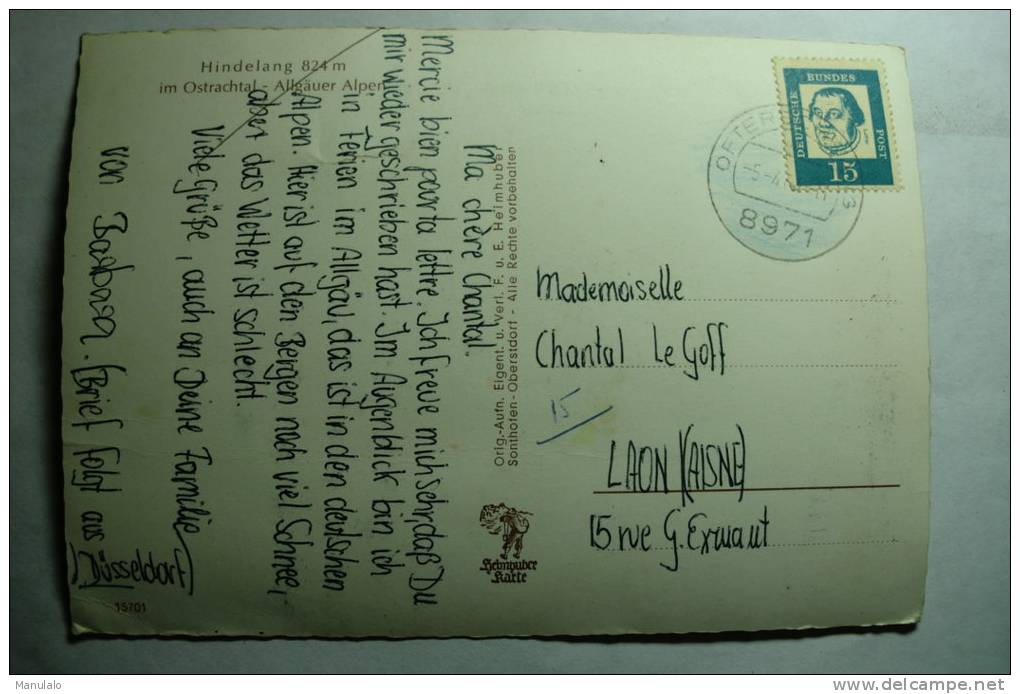 Hindelang 824 m
im Ostrachtal - Allgäuer Alpen
Ma chère Chantal.
Mercie bien poorta lettre. Ich freue mich sehr, daß Du
mir wieder geschrieben hast. Im Augenblick bin ich
in Ferien im Allgäu, das ist in den deutschen
Alpen. Hier ist auf den Bergen noch viel Schnee,
aber das Wetter ist schlecht.
Viele Grüße, auch an Deine Familie
von Barbara. (Brief folgt aus
Düsseldorf)
15701
Orig.-Aufn. Eigent. u. Verl. F. u. E. Heimhuber
Sonthofen - Oberstdorf - Alle Rechte vorbehalten
Heimhuber
Karte
DEUTSCHE
BUNDES
POST
15
8971
Mademoiselle
Chantal Le Goff
15
LAON (AISNE)
15 rue G. Ermant
Manulalo
delcampe.net